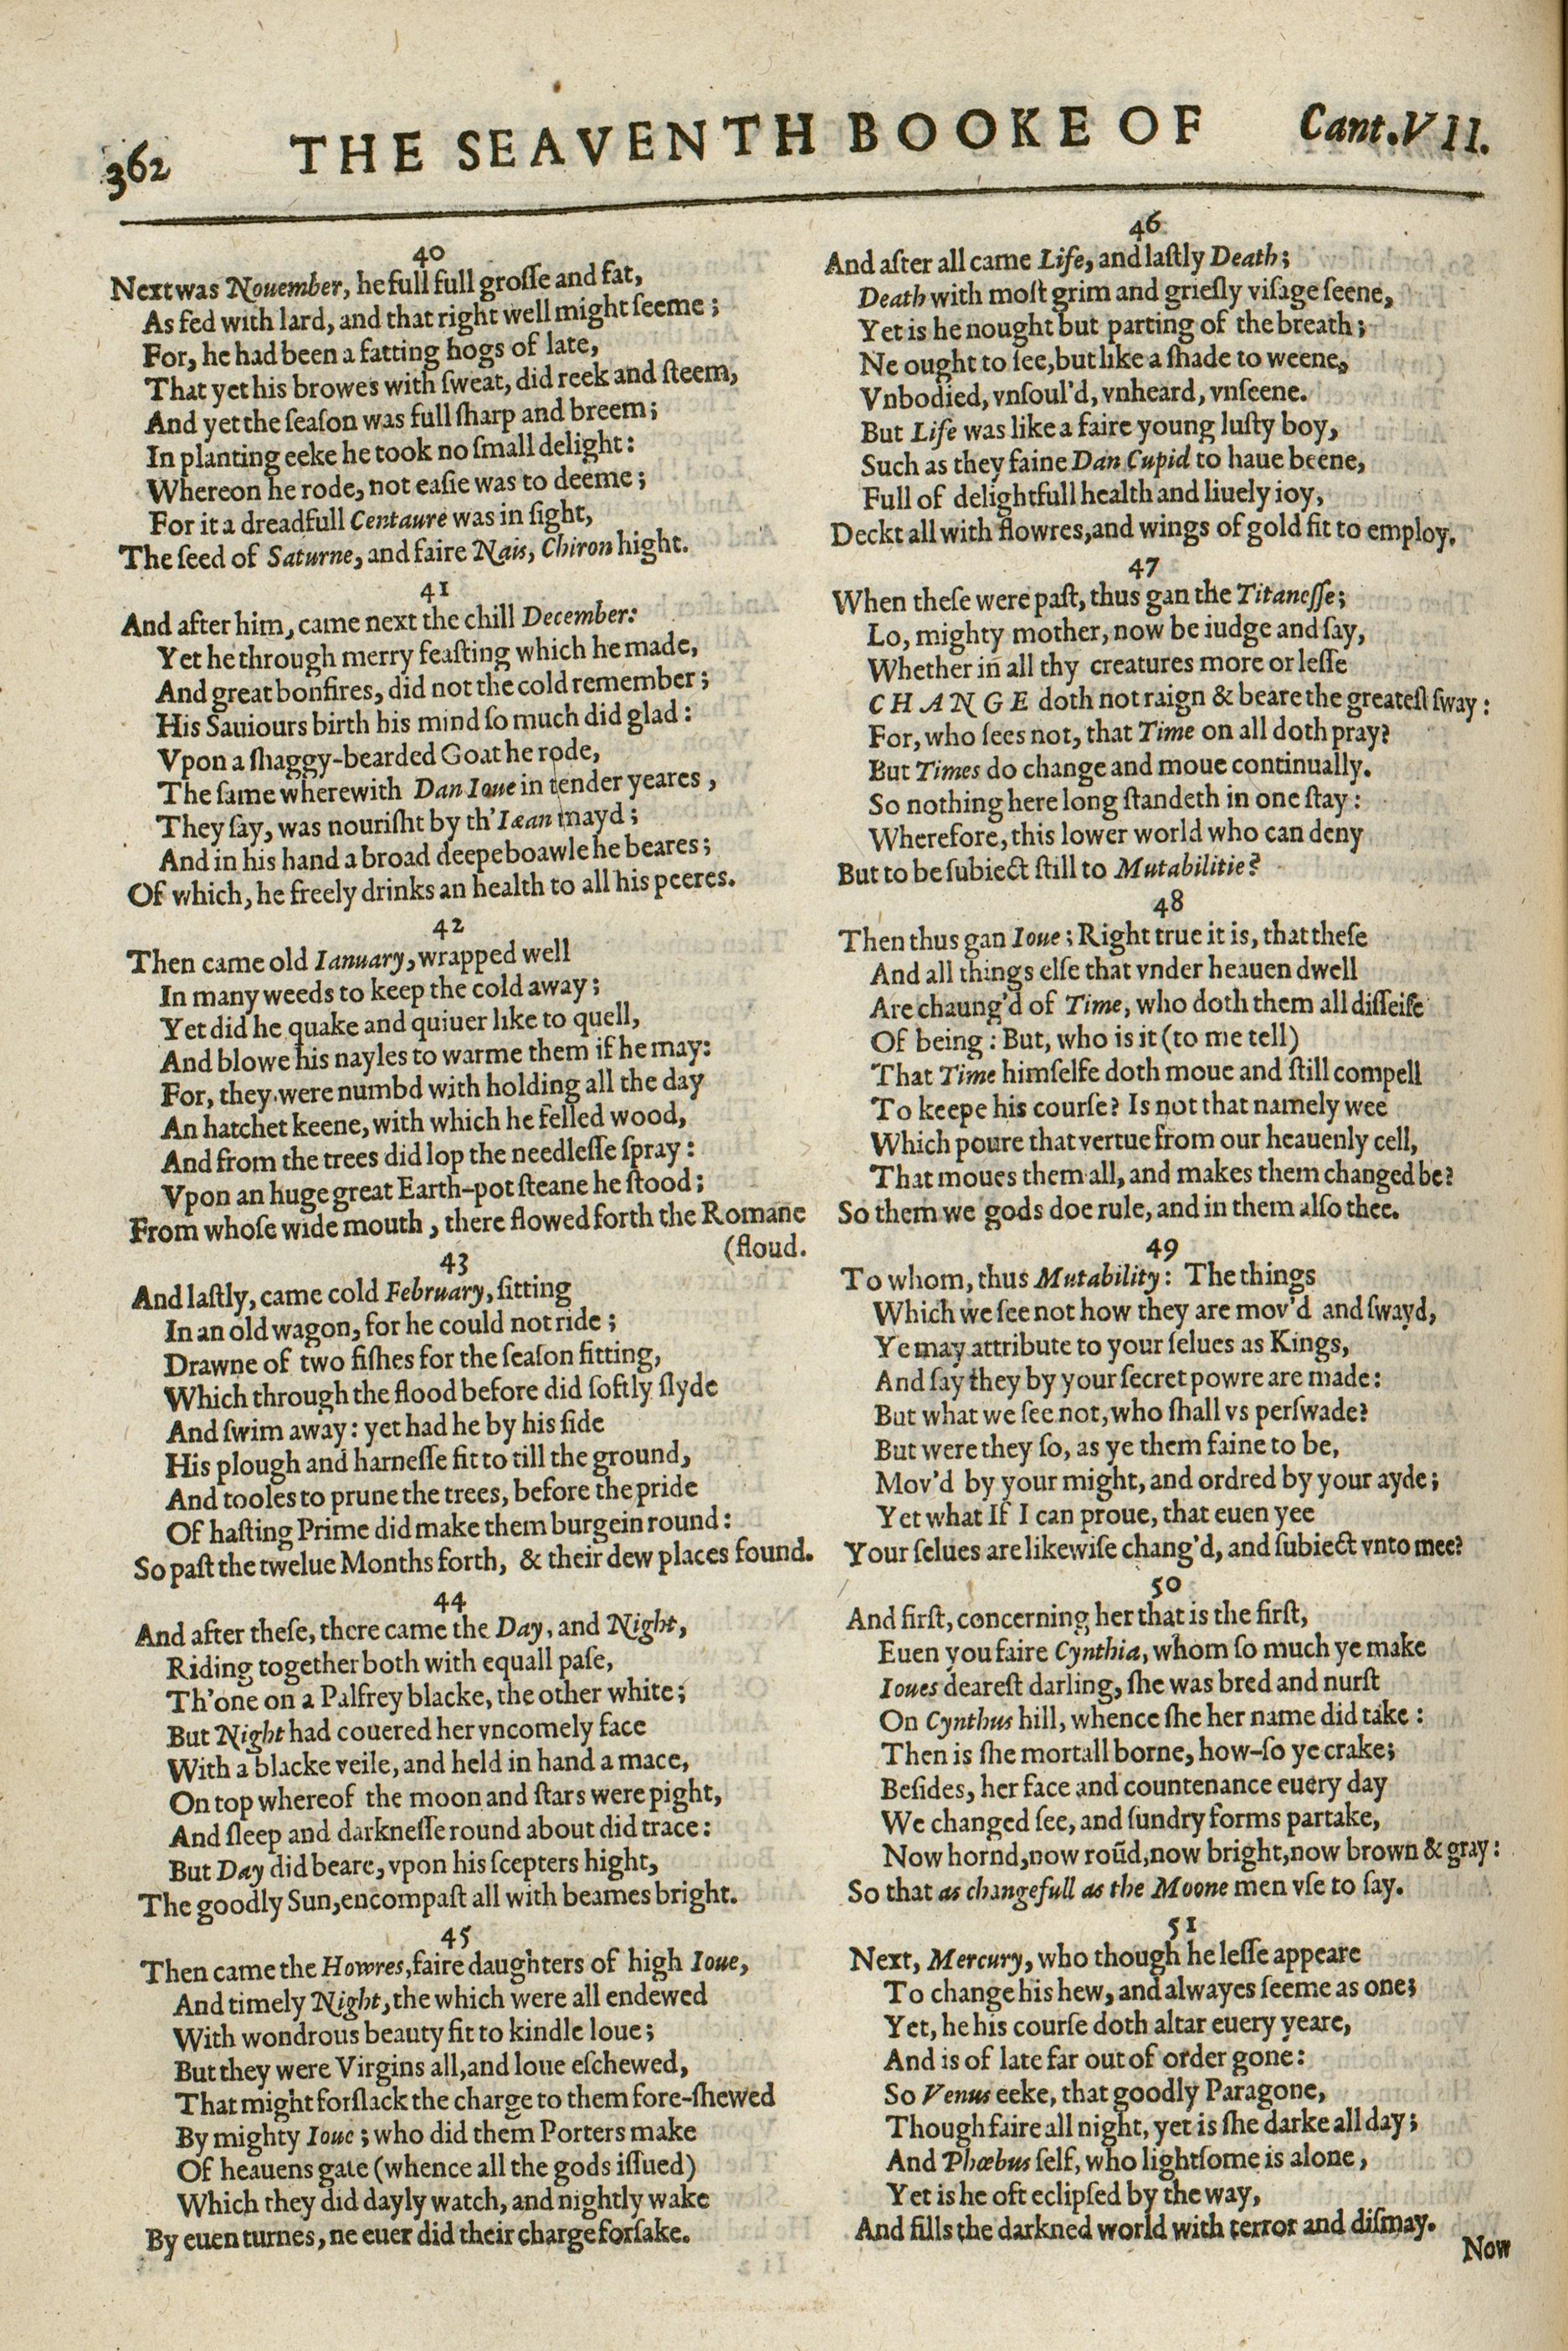 362 THE SEAVENTH BOOKE OF Cant.VII.
40
Next was Nouember, he full full groſſe and fat,
As fed with lard, and that right well might ſeeme;
For, he had been a fatting hogs of late,
That yet his browes with ſweat, did reek and ſteem,
And yet the ſeaſon was full ſharp and breem;
In planting eeke he took no ſmall delight:
Whereon he rode, not eaſie was to deeme;
For it a dreadfull Centaure was in ſight,
The ſeed of Saturne, and faire Nais, Chiron hight.
41
And after him, came next the chill December:
Yet he through merry feaſting which he made,
And great bonfires, did not the cold remember;
His Sauiours birth his mind ſo much did glad:
Vpon a ſhaggy-bearded Goat he rode,
The ſame wherewith Dan Ioue in tender yeares,
They ſay, was nouriſht by th'Iæan mayd;
And in his hand a broad deepe boawle he beares;
Of which, he freely drinks an health to all his peeres.
42
Then came old Ianuary, wrapped well
In many weeds to keep the cold away;
Yet did he quake and quiuer like to quell,
And blowe his nayles to warme them if he may:
For, they were numbd with holding all the day
An hatchet keene, with which he felled wood,
And from the trees did lop the needleſſe ſpray:
Vpon an huge great Earth-pot ſteane he ſtood;
From whoſe wide mouth, there flowed forth the Romane
(floud.
43
And laſtly, came cold February, ſitting
In an old wagon, for he could not ride;
Drawne of two fiſhes for the ſeaſon fitting,
Which through the flood before did ſoftly ſlyde
And ſwim away: yet had he by his ſide
His plough and harneſſe fit to till the ground,
And tooles to prune the trees, before the pride
Of haſting Prime did make them burgein round:
So paſt the twelue Months forth, & their dew places found.
44
And after theſe, there came the Day, and Night,
Riding together both with equall paſe,
Th'one on a Palfrey blacke, the other white;
But Night had couered her vncomely face
With a blacke veile, and held in hand a mace,
On top whereof the moon and ſtars were pight,
And ſleep and darkneſſe round about did trace:
But Day did beare, vpon his ſcepters hight,
The goodly Sun, encompaſt all with beames bright.
45
Then came the Howres, faire daughters of high Ioue,
And timely Night, the which were all endewed
With wondrous beauty fit to kindle loue;
But they were Virgins all, and loue eſchewed,
That might forſlack the charge to them fore-ſhewed
By mighty Ioue; who did them Porters make
Of heauens gate (whence all the gods iſſued)
Which they did dayly watch, and nightly wake
By euen turnes, ne euer did their charge forſake.
46
And after all came Life, and laſtly Death;
Death with moſt grim and grieſly viſage ſeene,
Yet is he nought but parting of the breath;
Ne ought to ſee, but like a ſhade to weene,
Vnbodied, vnſoul'd, vnheard, vnſeene.
But Life was like a faire young luſty boy,
Such as they faine Dan Cupid to haue beene,
Full of delightfull health and liuely ioy,
Deckt all with flowres, and wings of gold fit to employ.
47
When theſe were paſt, thus gan the Titaneſſe;
Lo, mighty mother, now be iudge and ſay,
Whether in all thy creatures more or leſſe
CHANGE doth not raign & beare the greateſt ſway:
For, who ſees not, that Time on all doth pray?
But Times do change and moue continually.
So nothing here long ſtandeth in one ſtay:
Wherefore, this lower world who can deny
But to be ſubiect ſtill to Mutabilitie?
48
Then thus gan Ioue; Right true it is, that theſe
And all things elſe that vnder heauen dwell
Are chaung'd of Time, who doth them all diſſeiſe
Of being: But, who is it (to me tell)
That Time himſelfe doth moue and ſtill compell
To keepe his courſe? Is not that namely wee
Which poure that vertue from our heauenly cell,
That moues them all, and makes them changed be?
So them we gods doe rule, and in them alſo thee.
49
To whom, thus Mutability: The things
Which we ſee not how they are mov'd and ſwayd,
Ye may attribute to your ſelues as Kings,
And ſay they by your ſecret powre are made:
But what we ſee not, who ſhall vs perſwade?
But were they ſo, as ye them faine to be,
Mov'd by your might, and ordred by your ayde;
Yet what If I can proue, that euen yee
Your ſelues are likewiſe chang'd, and ſubiect vnto mee?
50
And firſt, concerning her that is the firſt,
Euen you faire Cynthia, whom ſo much ye make
Ioues deareſt darling, ſhe was bred and nurſt
On Cynthus hill, whence ſhe her name did take:
Then is ſhe mortall borne, how-ſo ye crake;
Beſides, her face and countenance euery day
We changed ſee, and ſundry forms partake,
Now hornd, now roũd, now bright, now brown & gray:
So that as changefull as the Moone men vſe to ſay.
51
Next, Mercury, who though he leſſe appeare
To change his hew, and alwayes ſeeme as one;
Yet, he his courſe doth altar euery yeare,
And is of late far out of order gone:
So Venus eeke, that goodly Paragone,
Though faire all night, yet is ſhe darke all day;
And Phœbus ſelf, who lightſome is alone,
Yet is he oft eclipſed by the way,
And fills the darkned world with terror and diſmay.
Now